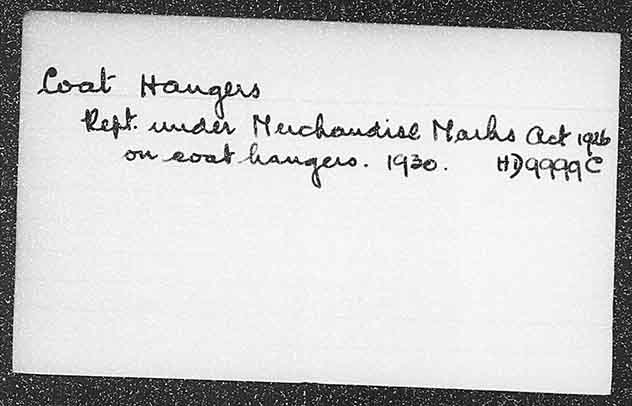 Coat Hangers
Rept. under Merchandise Marks Act 1926
on coat hangers. 1930. HD9999C